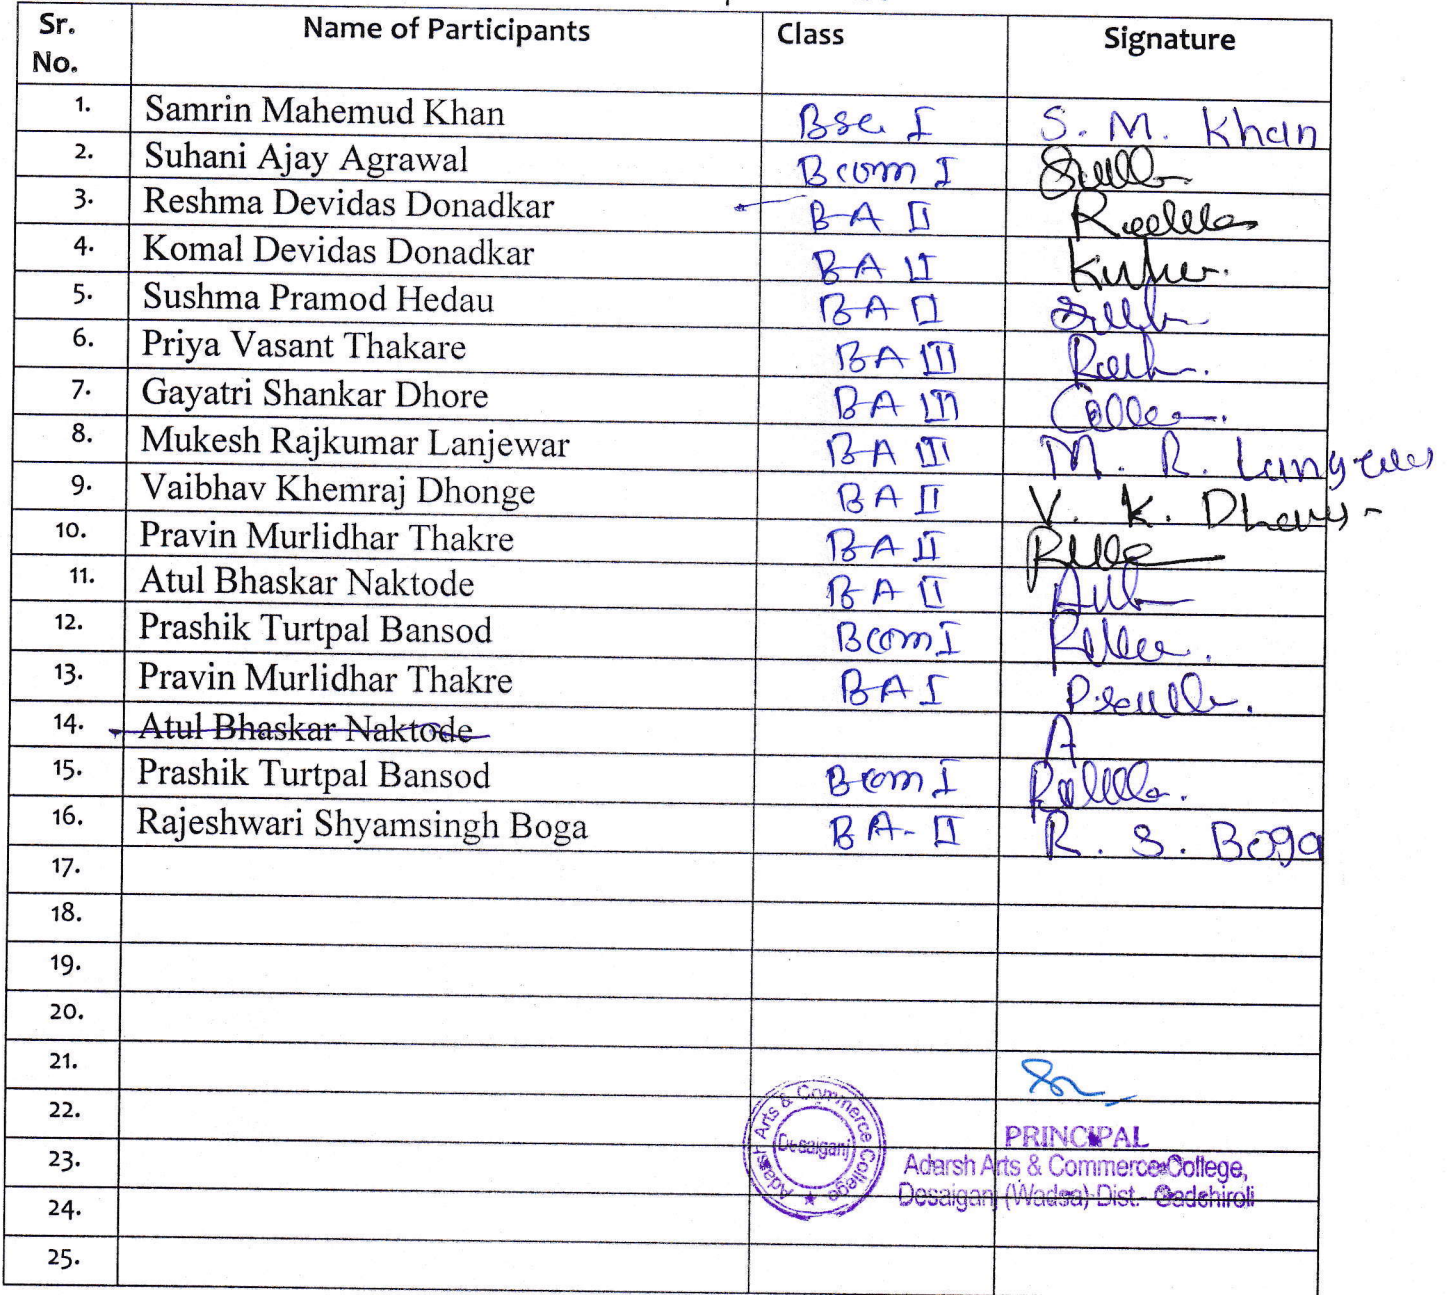 Sr. No. Name of Participants Class Signature
1. Samrin Mahemud Khan Bsc. I S. M. Khan
2. Suhani Ajay Agrawal Bcom I
3. Reshma Devidas Donadkar BA II
4. Komal Devidas Donadkar BA II
5. Sushma Pramod Hedau BA II
6. Priya Vasant Thakare BA III
7. Gayatri Shankar Dhore BA III
8. Mukesh Rajkumar Lanjewar BA III M. R.
9. Vaibhav Khemraj Dhonge BA II V. K.
10. Pravin Murlidhar Thakre BA II
11. Atul Bhaskar Naktode BA II
12. Prashik Turtpal Bansod Bcom I
13. Pravin Murlidhar Thakre BA I
14. Atul Bhaskar Naktode A
15. Prashik Turtpal Bansod Bcom I
16. Rajeshwari Shyamsingh Boga BA-II R. S. Boga
17.
18.
19.
20.
21.
22.
23.
24.
25.
Adarsh Arts & Commerce College
Desaiganj
PRINCIPAL
Adarsh Arts & Commerce College,
Desaiganj (Wadsa) Dist.- Gadchiroli